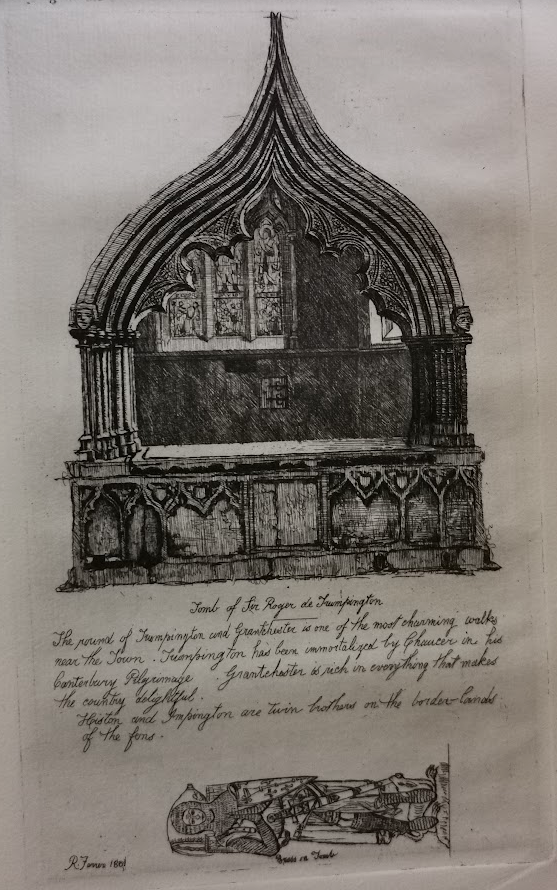 Tomb of Sir Roger de Trumpington
The round of Trumpington and Grantchester is one of the most charming walks
near the Town. Trumpington has been immortalized by Chaucer in his
Canterbury Pilgrimage. Grantchester is rich in everything that makes
the country delightful.
Histon and Impington are twin brothers on the border lands
of the fens.
Brass on Tomb
R. Farren